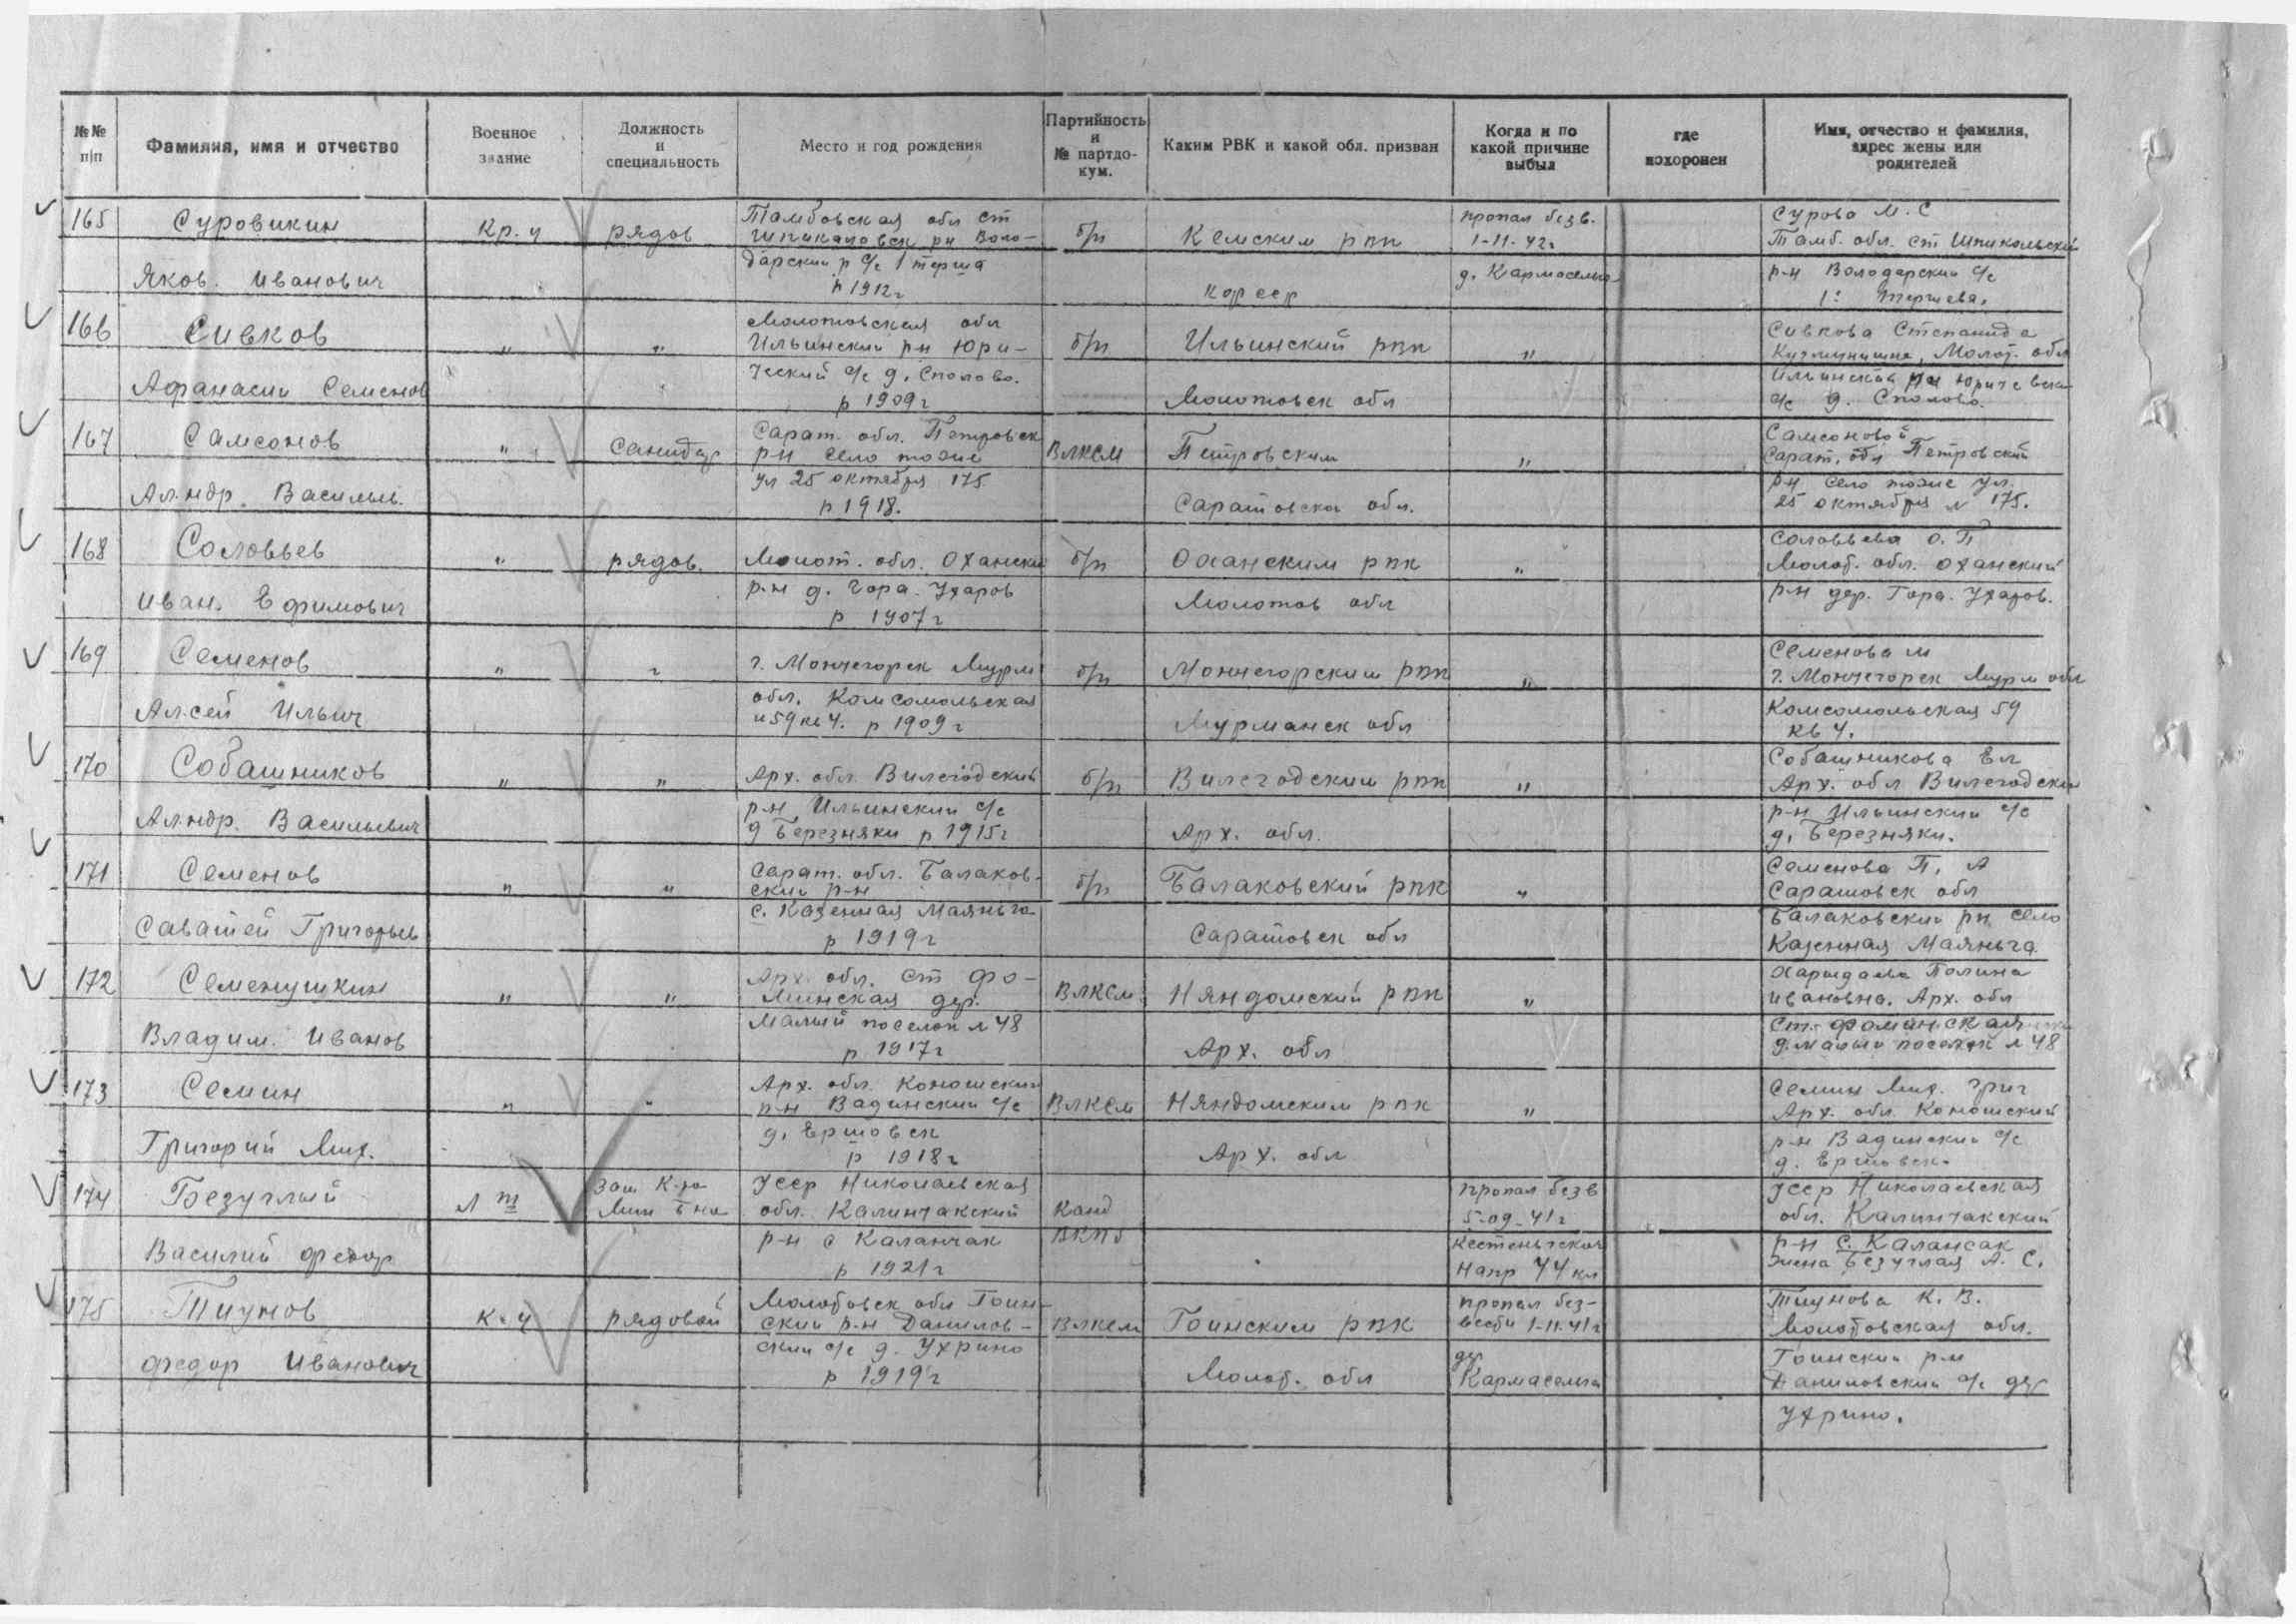 №№ п/п
Фамилия, имя и отчество
Военное звание
Должность и специальность
Место и год рождения
Партийность и № партдокум.
Каким РВК и какой обл. призван
Когда и по какой причине выбыл
где похоронен
Имя, отчество и фамилия, адрес жены или родителей
165 Суровикин Кр. ч рядов Тамбовская обл ст б/п Кемским рвк пропал без в. Сурова М. С
Воло- 1-11-42г Тамб. обл. ст Шпикольский
Яков. Иванович дарский р с/с 1 д. Кармасельга р-н Володарский с/с
р 1912г кор сср 1:
166 Сивков " " Молотовская обл б/п Ильинский рвк " Сивкова Степанида
Ильинский рн Юри- Молот. обл
Афанасий Семенов ческий с/с д. Сполово. Ильинский рн
р 1909г Молотовск обл с/с д. Сполово.
167 Самсонов " Санитар Сарат. обл. Петровск ВЛКСМ Петровским " Самсоновой
р-н село тоже Сарат. обл Петровский
Ал.ндр. Василье. ул 25 октября 175 р-н село тоже ул.
р 1918. Саратовска обл. 25 октября № 175.
168 Соловьев " рядов. Молот. обл. Оханский б/п Оханским рвк " Соловьева О. П
Молот. обл. Оханский
Иван. Ефимович р-н д. Гора. Ухаров Молотов обл р-н дер. Гора. Ухаров.
р 1907г
169 Семенов " " г. Мончегорск Мурм б/п Мончегорским рвк " Семенова М
г. Мончегорск Мурм обл
Ал.сей Ильич обл. Комсомольская Мурманск обл Комсомольская 59
59 кв 4. р 1909г кв 4.
170 Собашников " " Арх. обл. Вилегодский б/п Вилегодским рвк " Собашникова Ел
Арх. обл Вилегодский
Ал.ндр. Васильевич р-н Ильинский с/с Арх. обл. р-н Ильинский с/с
д Березняки р 1915г д. Березняки.
171 Семенов " " Сарат. обл. Балаков- б/п Балаковский рвк " Семенова П. А
ский р-н Саратовск обл
Саватей Григорьев с. Казенная Маяньга Саратовск обл Балаковский рн село
р 1919г Казенная Маяньга
172 Семенушкин " " Арх. обл. ст Фо- ВЛКСМ Няндомский рвк " Полина
минская дер. Ивановна. Арх. обл
Владим. Иванов Малый поселок № 48 Арх. обл ст. Фоманская
р 1917г д. малый поселок № 48
173 Семин " " Арх. обл. Коношский ВЛКСМ Няндомским рвк " Семин Мих. Григ
р-н Вадинский с/с Арх. обл. Коношский
Григорий Мих. д. Ершовск Арх. обл р-н Вадинский с/с
р 1918г д. Ершовск.
174 Безуглый л-т зам К-ра УССР Николаевская Канд пропал без в УССР Николаевская
Мин б-на обл. Каланчакский ВКПб 5-09-41г обл. Каланчакский
Василий Федор р-н с Каланчак Кестеньгское р-н с. Калансак
р 1921г напр 44 км жена Безуглая А. С.
175 Тиунов К. ч рядовой Молотовск обл Гоин- ВЛКСМ Гоинским рвк пропал без- Тиунова К. В.
ский р-н Данилов- вести 1-11-41г Молотовская обл.
Федор Иванович ский с/с д. Ухрино Молот. обл дер Гоинский р-н
р 1919г Кармасельга Даниловский с/с дер
Ухрино.